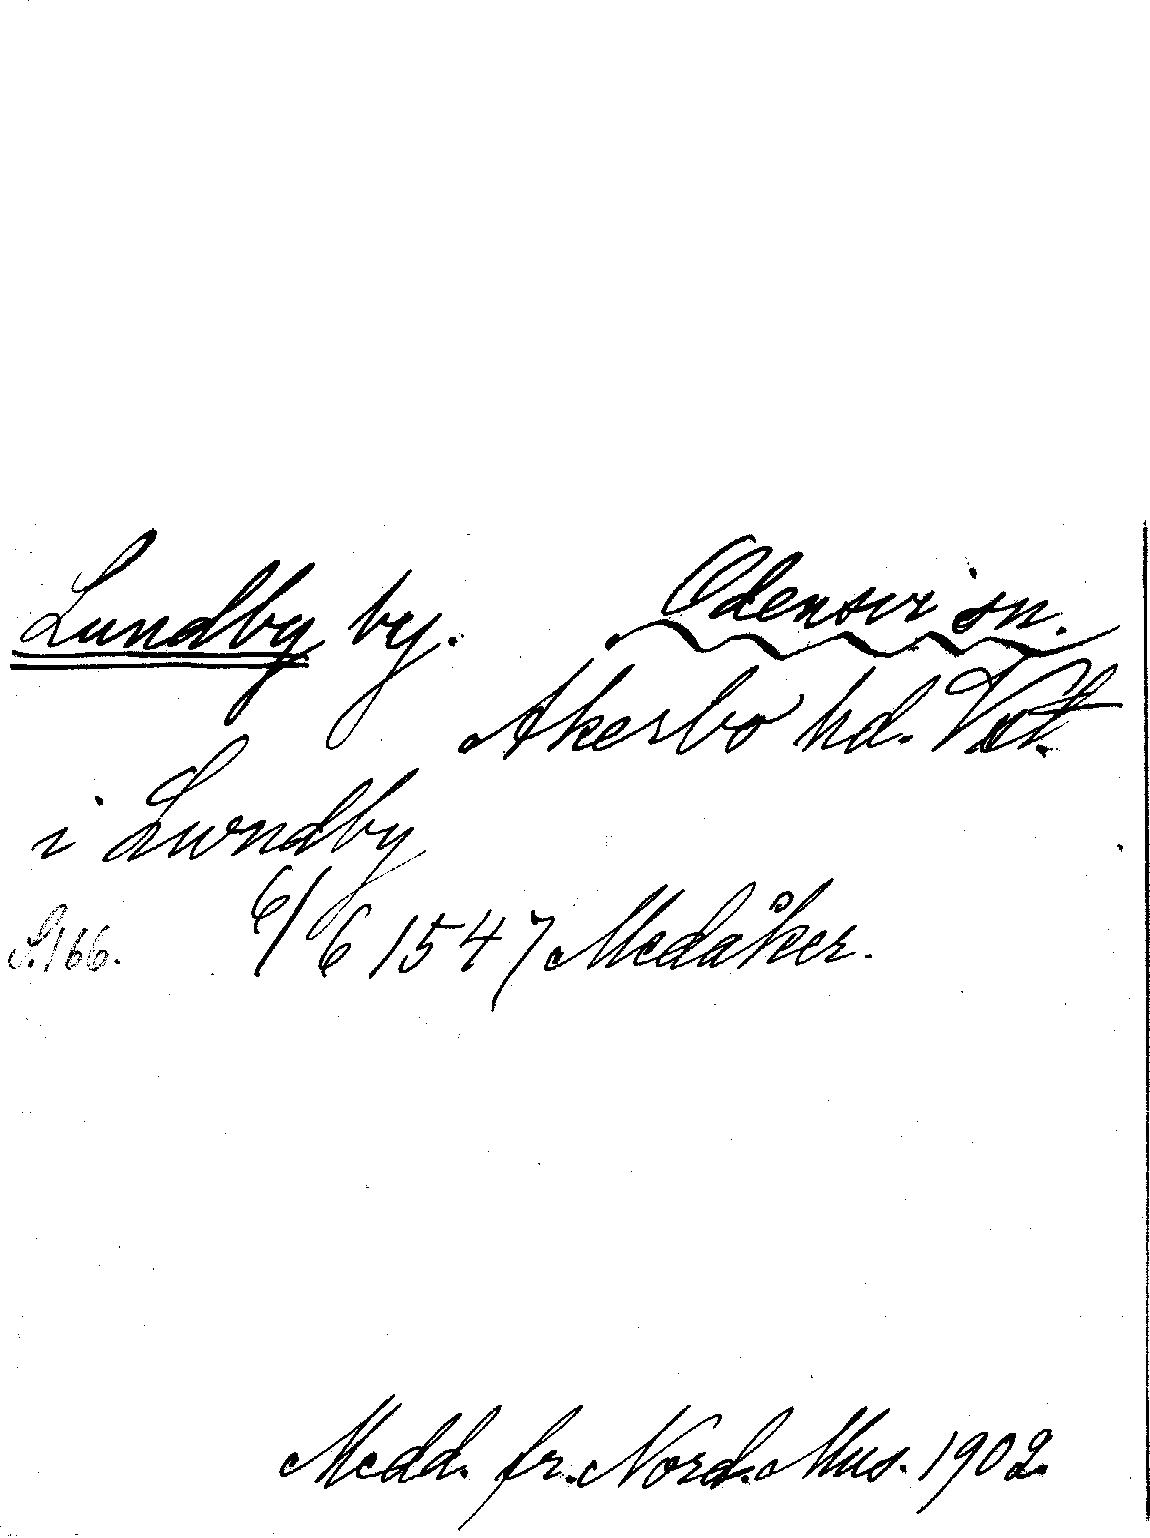 Lundby by. Odensvi sn.
Akerbo hd. Vstm.
i Lwndby
S. 166. 6/6 1547 Medåker.
Medd. fr. Nord. Mus. 1902.